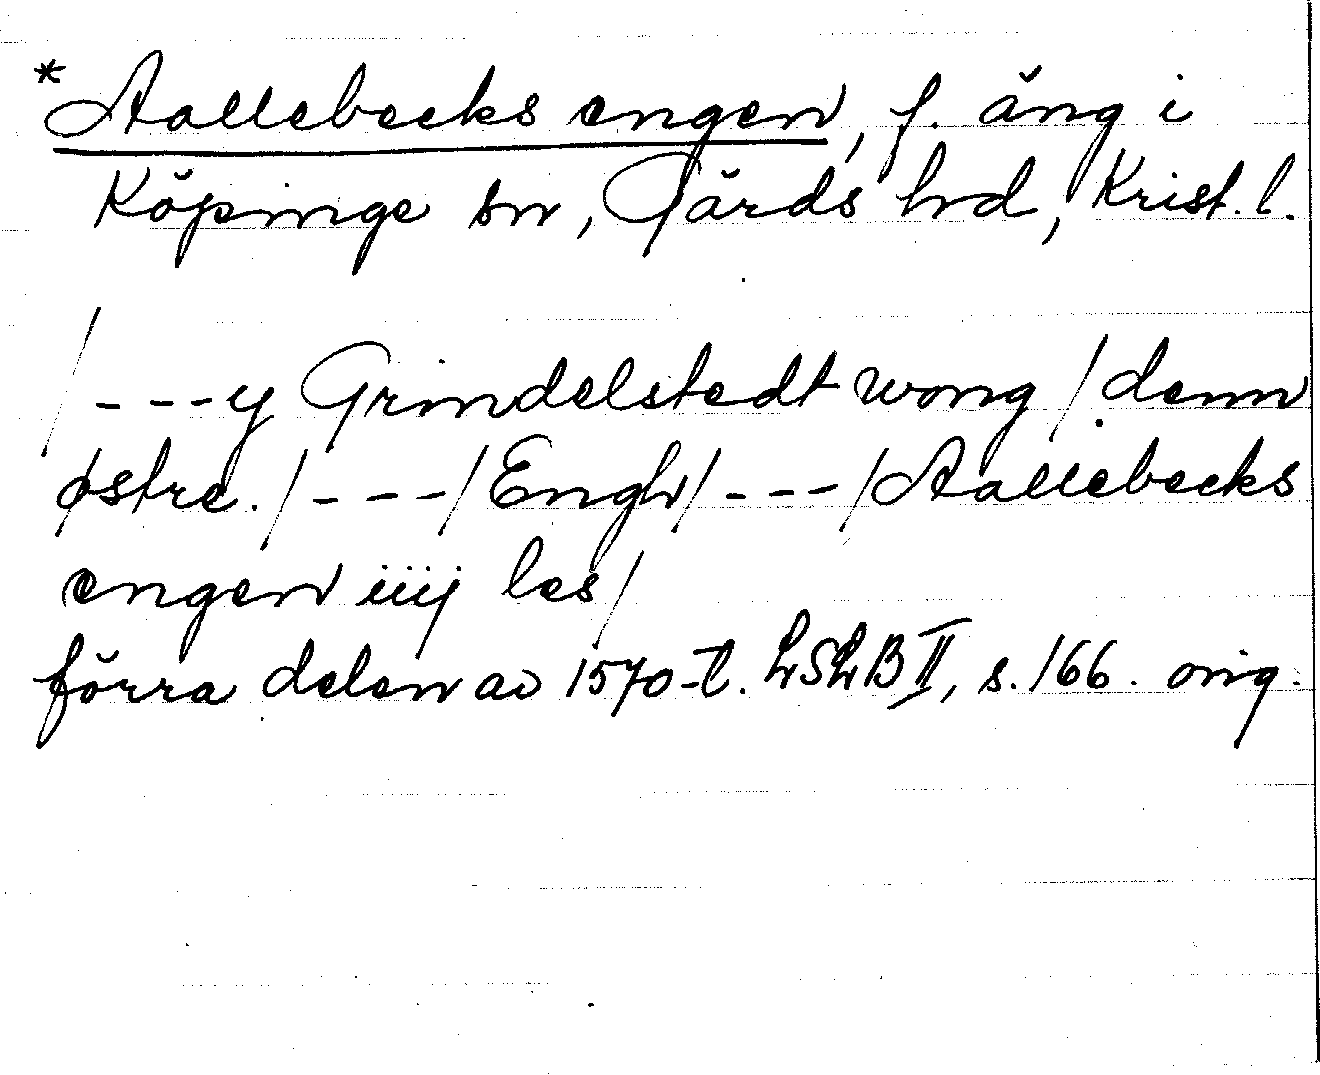 *Aallebecks engen, f. äng i
Köpinge sn, Gärds hd, Krist. l.
/---y Grindelstedt wong / denn
østre. /---/ Engh /---/ Aallebecks
engen iiij les/
förra delen av 1570-t. LSLB II, s. 166. orig.